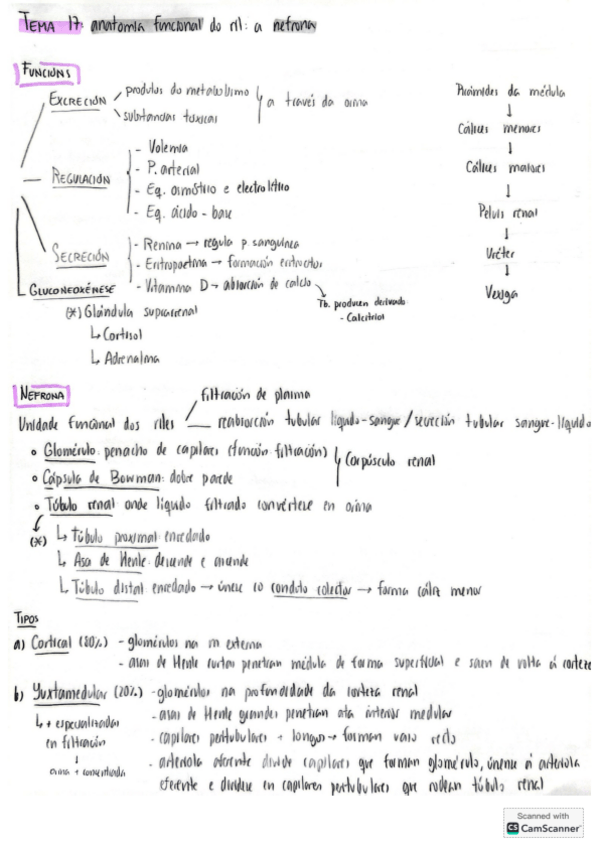 TEMA 17: anatomía funcional do ril: a nefrona
FUNCIÓNS
EXCRECIÓN
produtos do metabolismo
substancias tóxicas
a través da orina
REGULACIÓN
- Volemia
- P. arterial
- Eq. osmótico e electrolítico
- Eq. ácido-base
SECRECIÓN
- Renina → regula p. sanguínea
- Eritropoetina → formación eritrocitos
- Vitamina D → absorción de calcio
Tb. producen derivado
- Calcitriol
GLUCONEOXÉNESE
(*) Glándula suprarrenal
↳ Cortisol
↳ Adrenalina
Pirámides da médula
↓
Cálices menores
↓
Cálices maiores
↓
Pelvis renal
↓
Uréter
↓
Vexiga
NEFRONA
Unidade funcional dos riles
filtración de plasma
reabsorción tubular líquido-sangue / secreción tubular sangue-líquido
• Glomérulo: penacho de capilares (función filtración)
• Cápsula de Bowman: dobre parede
Corpúsculo renal
• Túbulo renal onde líquido filtrado convértese en orina
(*) ↳ Túbulo proximal: enredado
↳ Asa de Henle: descende e ascende
↳ Túbulo distal: enredado → únese co conduto colector → forma cáliz menor
TIPOS
a) Cortical (80%) - glomérulos na m externa
- asas de Henle curtas penetran médula de forma superficial e saen de volta á corteza
b) Yuxtamedular (20%) - glomérulos na profundidade da corteza renal
↳ + especializadas
en filtración
↓
orina + concentrada
- asas de Henle grandes penetran ata interior medular
- capilares peritubulares + longos → forman vaso recto
- arteriola aferente divide capilares que forman glomérulo, únense á arteriola
eferente e divídese en capilares peritubulares que rodean túbulo renal
Scanned with
CS CamScanner